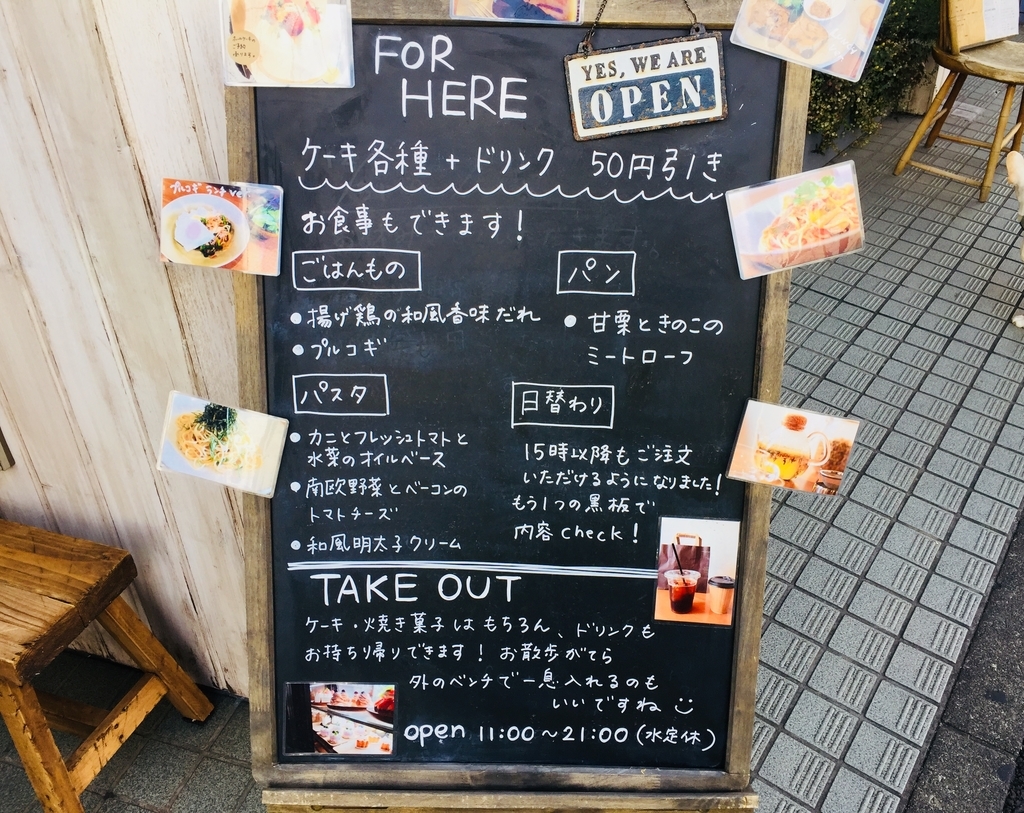 FOR
HERE
YES, WE ARE
OPEN
ケーキ各種 + ドリンク 50円引き
お食事もできます!
ごはんもの
● 揚げ鶏の和風香味だれ
● プルコギ
パン
● 甘栗ときのこの
ミートローフ
パスタ
● カニとフレッシュトマトと
水菜のオイルベース
● 南欧野菜とベーコンの
トマトチーズ
● 和風明太子クリーム
日替わり
15時以降もご注文
いただけるようになりました!
もう1つの黒板で
内容check!
TAKE OUT
ケーキ・焼き菓子はもちろん、ドリンクも
お持ち帰りできます! お散歩がてら
外のベンチで一息入れるのも
いいですね
open 11:00〜21:00 (水定休)
プルコギ ランチ